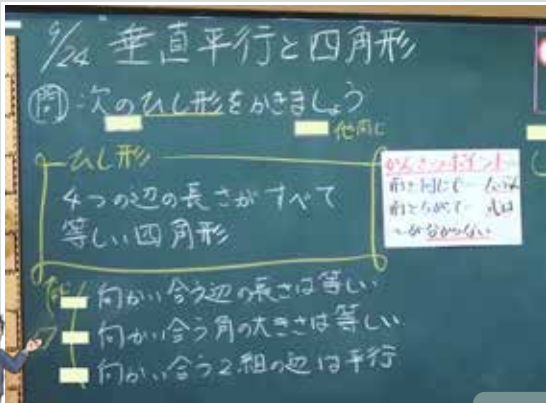 9/24 垂直平行と四角形
問 次のひし形をかきましょう
他同じ
ひし形
4つの辺の長さがすべて
等しい四角形
かんさつポイント
前と同じで
前とちがって
〜が分からない
向かい合う辺の長さは等しい
向かい合う角の大きさは等しい
向かい合う2組の辺は平行